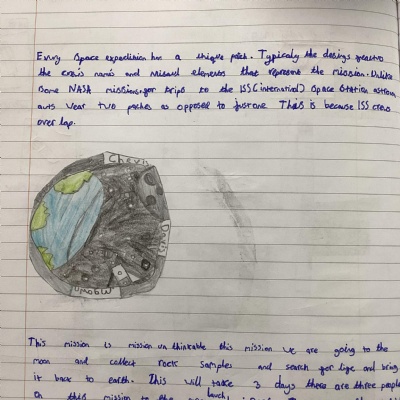 Every Space expedition has a unique patch. Typicaly the desings
the crew's names and visual elements that represent the mission. Unlike
Some NASA missions, for trips to the ISS (international) Space Station astron
auts wear two patches as opposed to just one. This is because ISS crews
over lap.
Chevi
David
This mission is mission un thinkable this mission we are going to the
moon and collect rock samples and search for life and bring
it back to earth. This will take 3 days there are three people
On this mission to the moon
launch